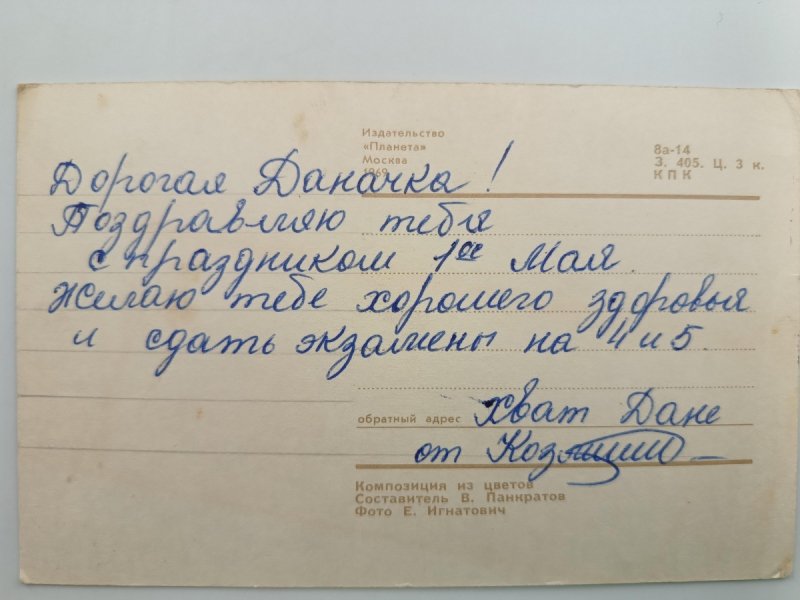 Издательство
«Планета»
Москва
1969
8а-14
З. 405. Ц. 3 к.
КПК
Дорогая Даначка!
Поздравляю тебя
с праздником 1ое Мая.
Желаю тебе хорошего здоровья
и сдать экзамены на 4 и 5.
обратный адрес Хват Дане
от
Композиция из цветов
Составитель В. Панкратов
Фото Е. Игнатович